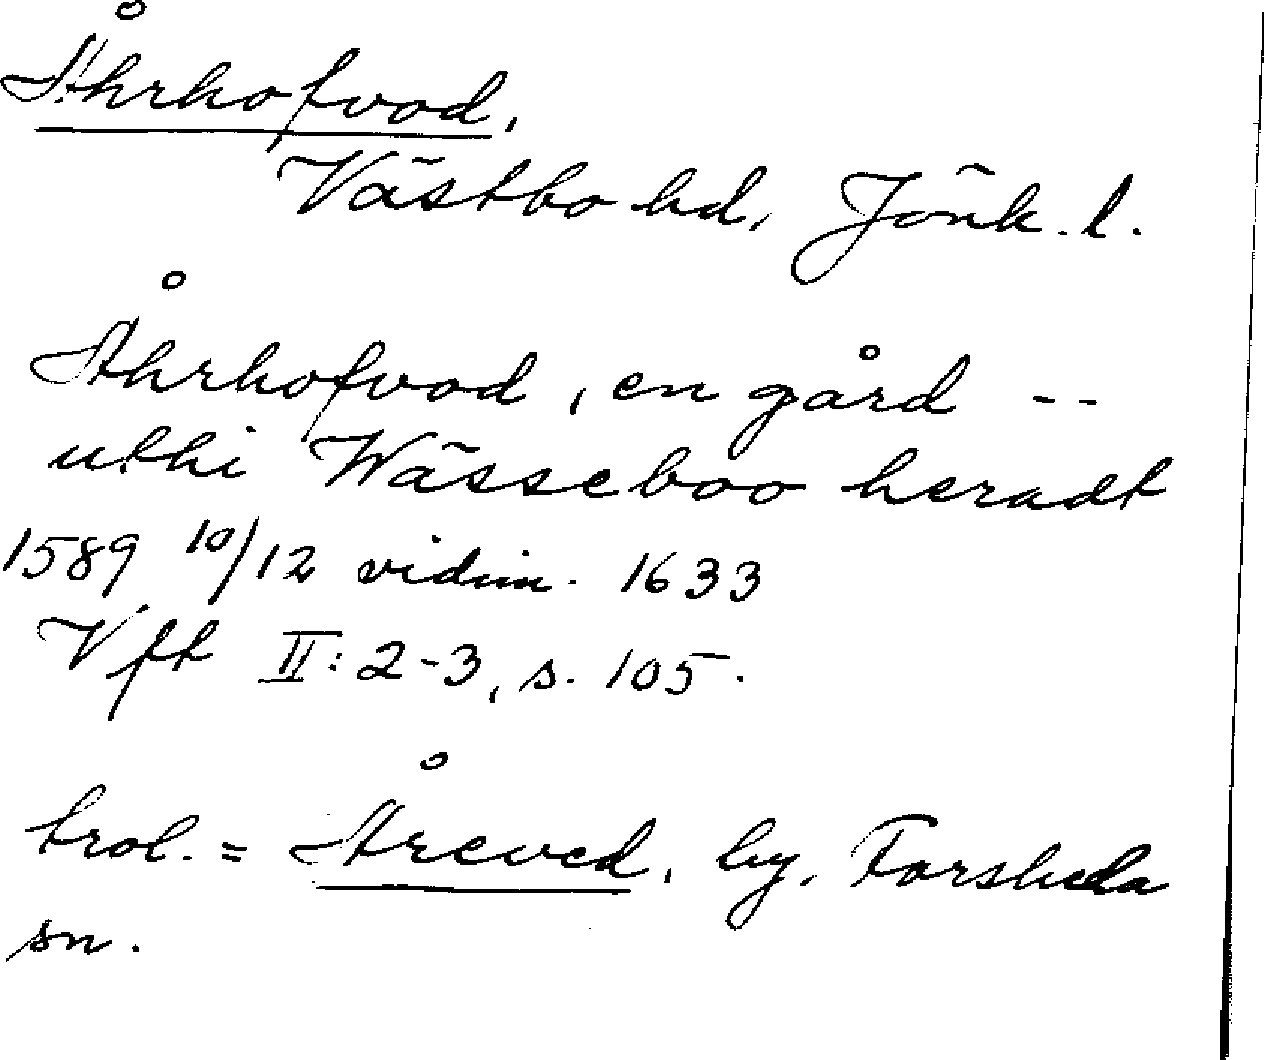 Åhrhofvod,
Västbo hd, Jönk. l.
Åhrhofvod, en gård --
uthi Wässeboo heradt
1589 10/12 vidim. 1633
Vft II: 2-3, s. 105.
trol. = Åreved, by, Forsheda
sn.